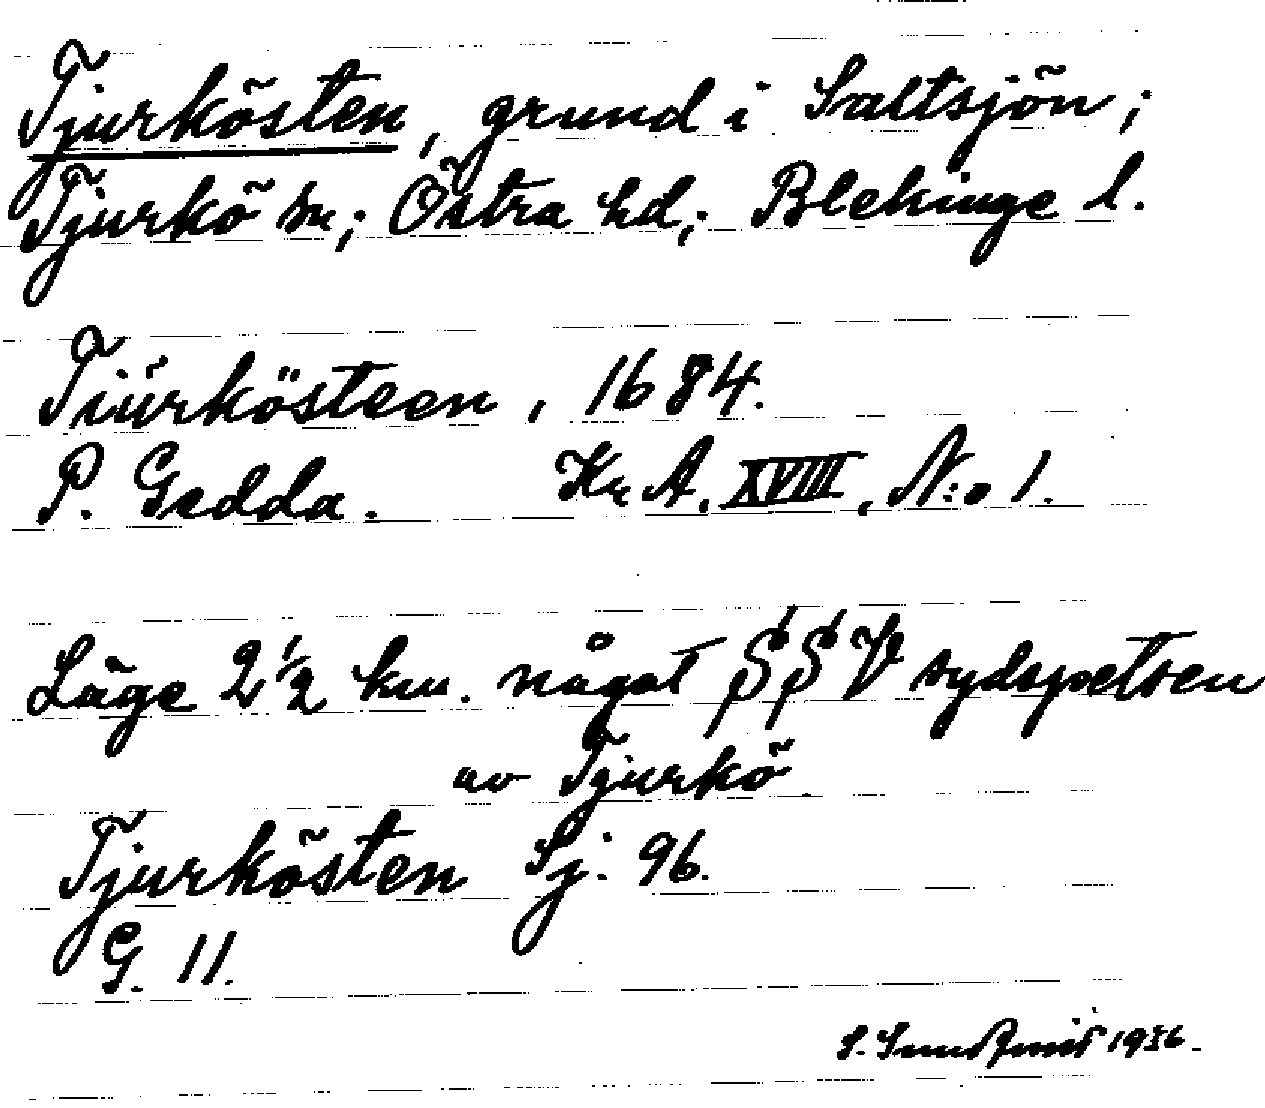 Tjurkösten, grund i Saltsjön;
Tjurkö sn; Östra hd; Blekinge l.
Tiúrkösteen, 1684.
P. Gedda. Kr A. XVIII, N:o 1.
Läge 2 1/2 km. något SSV sydspetsen
av Tjurkö.
Tjurkösten Sj. 96.
G. 11.
S. 1936.